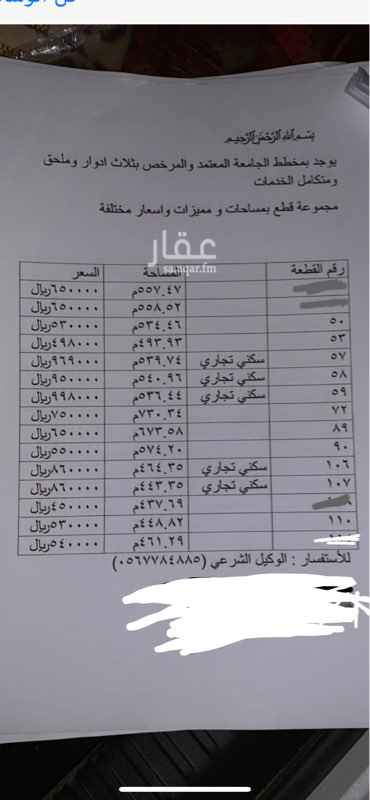 بسم الله الرحمن الرحيم
يوجد بمخطط الجامعة المعتمد والمرخص بثلاث ادوار وملحق
ومتكامل الخدمات
مجموعة قطع بمساحات و مميزات واسعار مختلفة
عقار
sa.aqar.fm
رقم القطعة المساحة السعر
٥٥٧.٤٧م ٦٥٠٠٠٠ريال
٥٥٨.٥٢م ٦٥٠٠٠٠ريال
٥٠ ٥٣٤.٤٦م ٥٣٠٠٠٠ريال
٥٣ ٤٩٣.٩٣م ٤٩٨٠٠٠ريال
٥٧ سكني تجاري ٥٣٩.٧٤م ٩٦٩٠٠٠ريال
٥٨ سكني تجاري ٥٤٠.٩٦م ٩٥٠٠٠٠ريال
٥٩ سكني تجاري ٥٣٦.٤٤م ٩٩٨٠٠٠ريال
٧٢ ٧٣٠.٣٤م ٧٥٠٠٠٠ريال
٨٩ ٦٧٣.٥٨م ٦٥٠٠٠٠ريال
٩٠ ٥٧٤.٢٠م ٥٥٠٠٠٠ريال
١٠٦ سكني تجاري ٤٦٤.٣٥م ٨٦٠٠٠٠ريال
١٠٧ سكني تجاري ٤٤٣.٣٥م ٨٦٠٠٠٠ريال
٤٣٧.٦٩م ٤٥٠٠٠٠ريال
١١٠ ٤٤٨.٨٢م ٥٣٠٠٠٠ريال
٤٦١.٢٩م ٥٤٠٠٠٠ريال
للأستفسار : الوكيل الشرعي (٠٥٦٧٧٨٤٨٨٥)